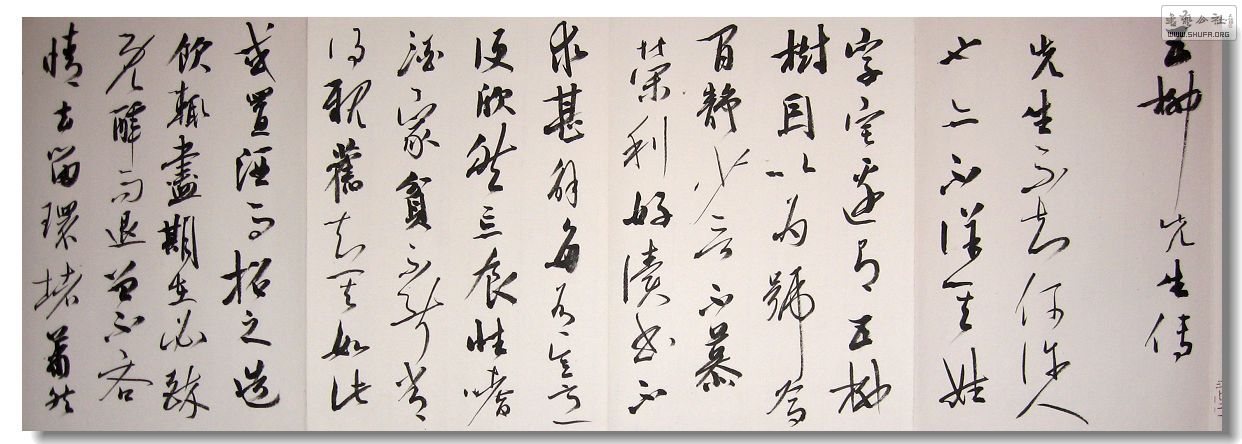 五柳先生傳
先生不知何許人
也亦不詳其姓
字宅邊有五柳
樹因以为號焉
閑静少言不慕
榮利好讀書不
求甚解每有會意
便欣然忘食性嗜
酒家貧不能常
得親舊知其如此
或置酒而招之造
飲輒盡期在必醉
既醉而退曾不吝
情去留環堵蕭然
WWW.SHUFA.ORG